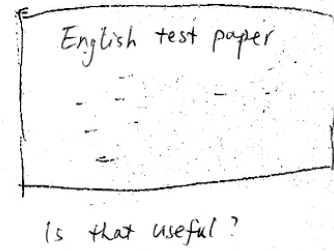 English test paper
Is that useful?